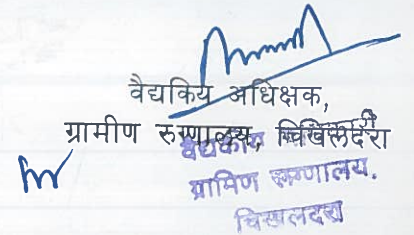 वैद्यकिय अधिक्षक,
ग्रामीण रुग्णालय, चिखलदरा
वैद्यकीय अधिकारी
ग्रामिण रुग्णालय.
चिखलदरा